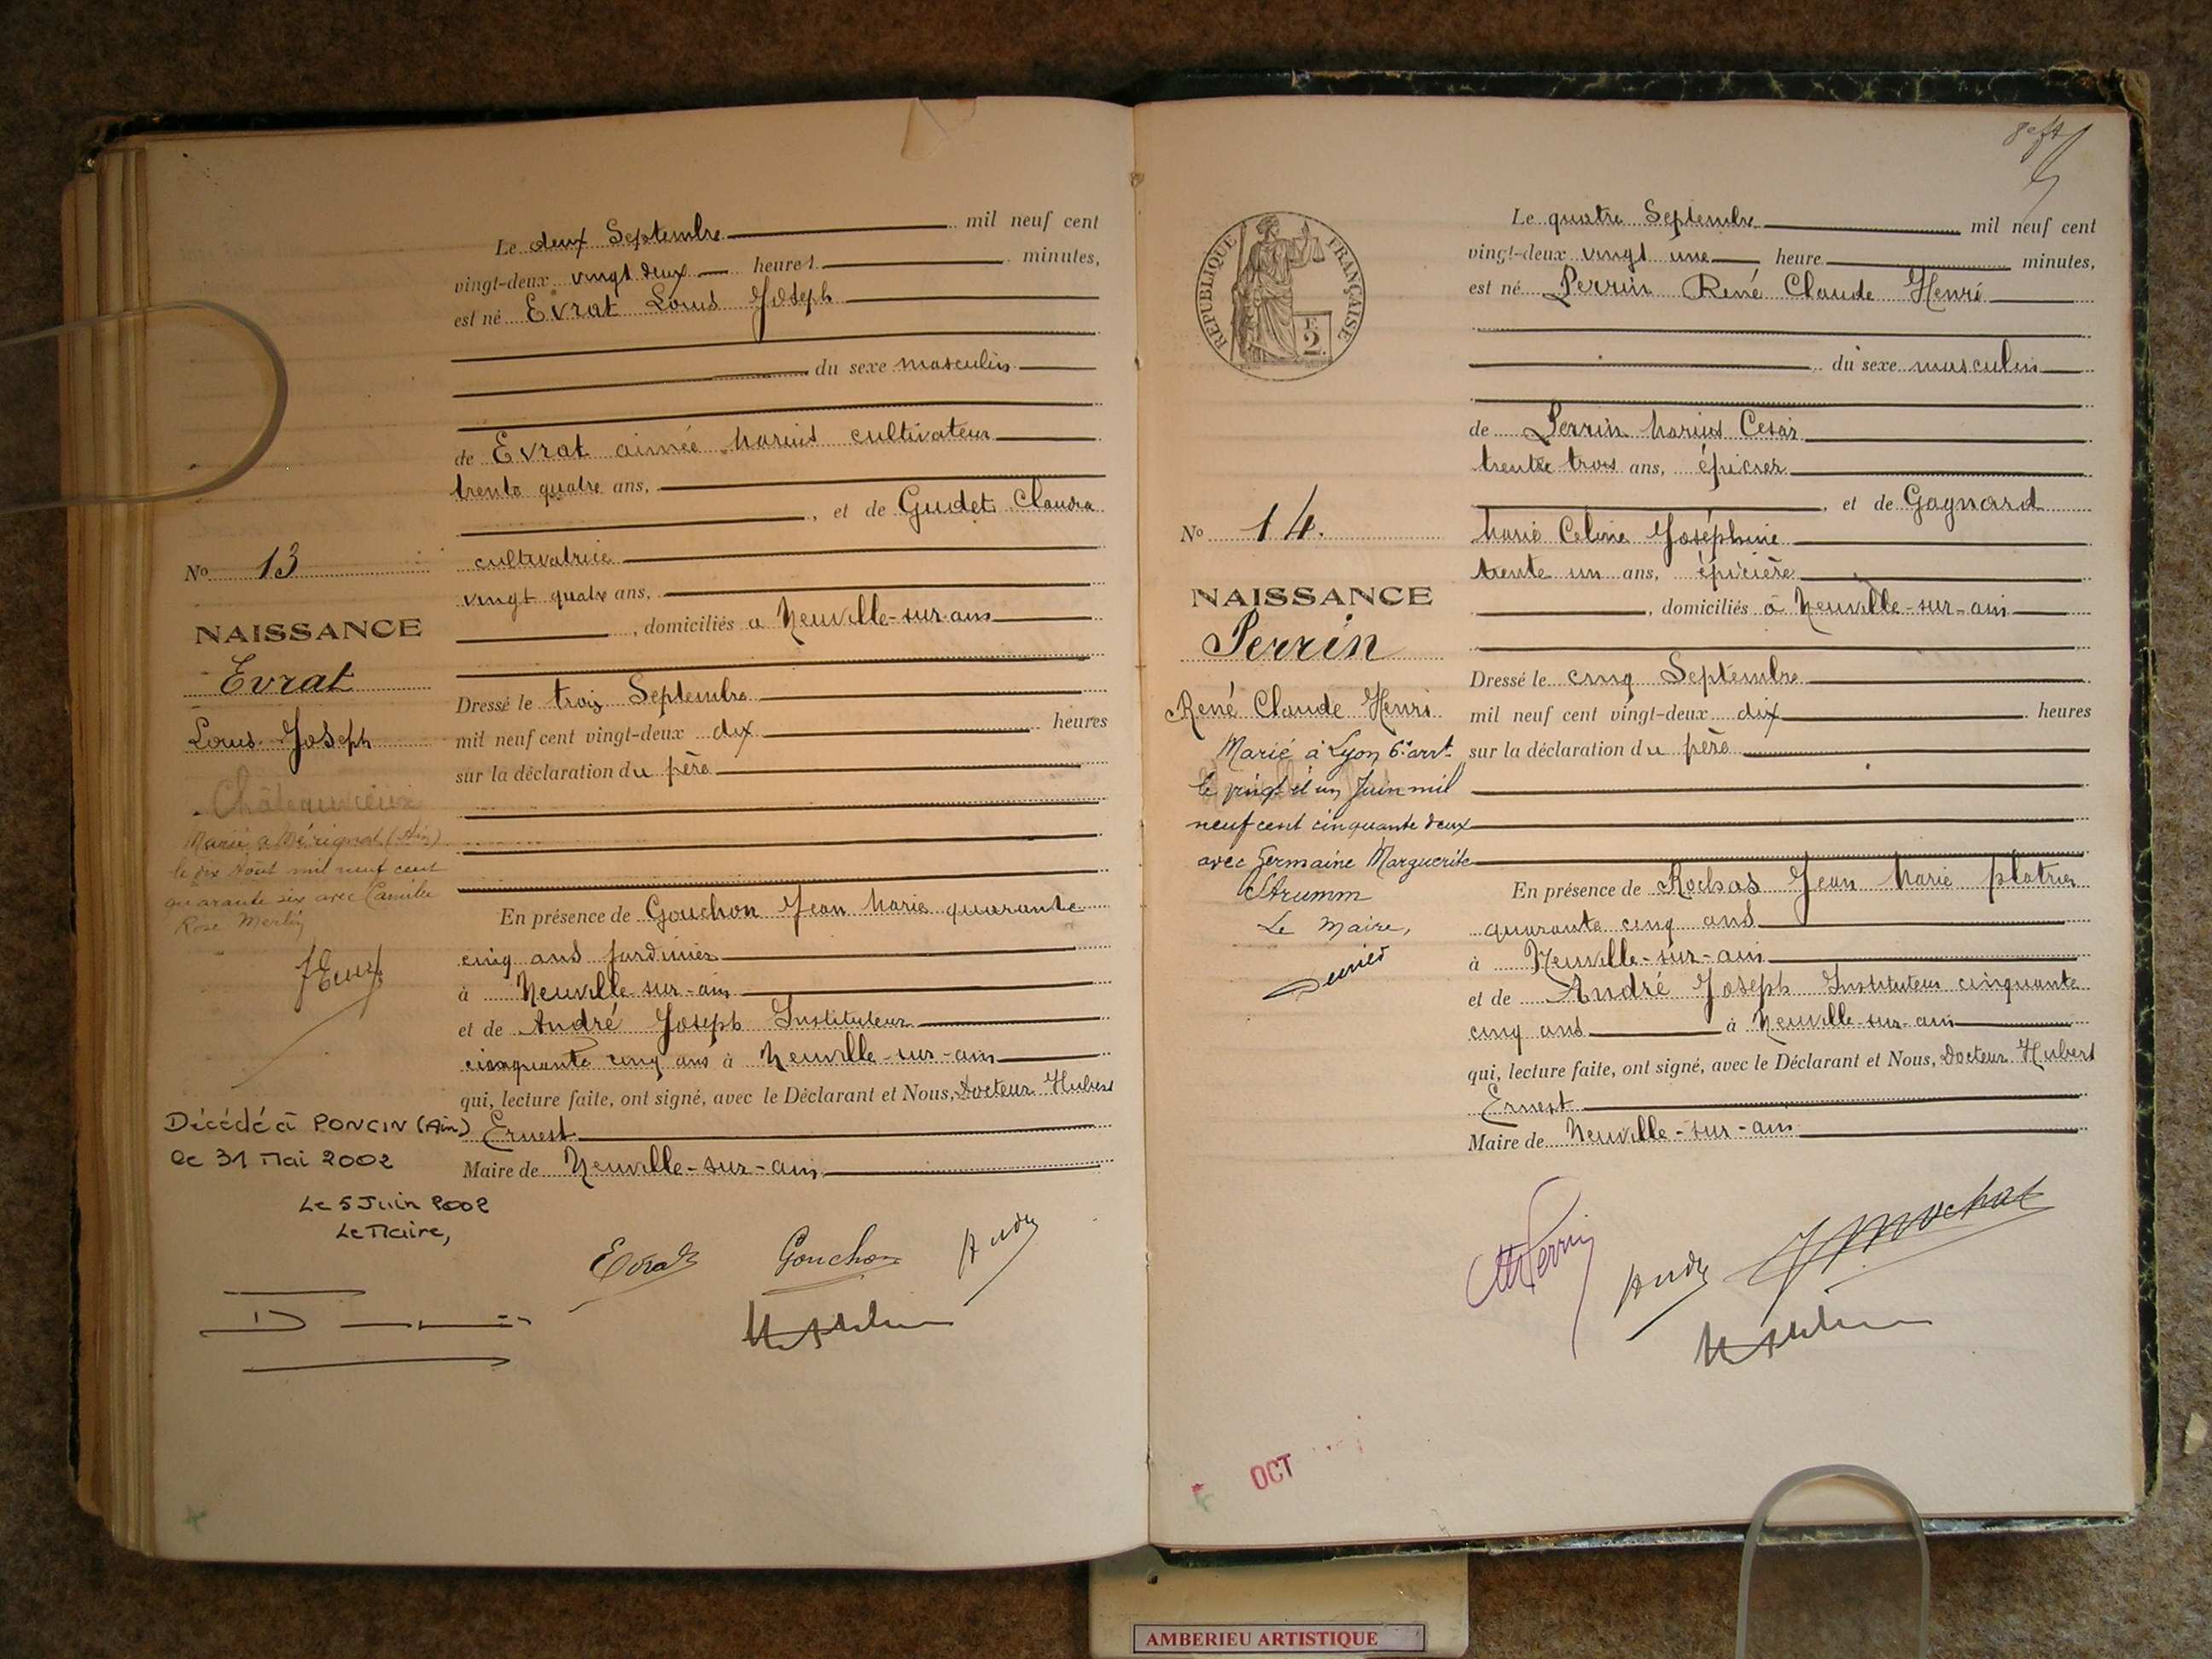 Le deux Septembre mil neuf cent
vingt-deux vingt deux heures minutes,
est né Evrat Louis Joseph
du sexe masculin
de Evrat aimée Marius cultivateur
trente quatre ans,
, et de Gudet Claudia
cultivatrice
vingt quatre ans,
, domiciliés a Neuville-sur-ain
Dressé le trois Septembre
mil neuf cent vingt-deux dix heures
sur la déclaration du père
En présence de Gouchon Jean Marie quarante
cinq ans jardinier
à Neuville-sur-ain
et de André Joseph Instituteur
cinquante cinq ans à Neuville-sur-ain
qui, lecture faite, ont signé, avec le Déclarant et Nous, Docteur Hubert
Ernest
Maire de Neuville-sur-ain
Evrat Gouchon André
No 13
NAISSANCE
Evrat
Louis Joseph
Marié a Mérignat (Ain)
le dix Août mil neuf cent
quarante six avec Camille
Rose Merlin
Décédé à PONCIN (Ain)
le 31 Mai 2002
Le 5 Juin 2002
Le Maire,
Le quatre Septembre mil neuf cent
vingt-deux vingt une heure minutes,
est né Perrin René Claude Henri
du sexe masculin
de Perrin Marius Cesar
trente trois ans, épicier
, et de Gagnard
Marie Celine Joséphine
trente un ans, épicière
, domiciliés à Neuville-sur-ain
Dressé le cinq Septembre
mil neuf cent vingt-deux dix heures
sur la déclaration du père
En présence de Rochas Jean Marie platrier
quarante cinq ans
à Neuville-sur-ain
et de André Joseph Instituteur cinquante
cinq ans à Neuville-sur-ain
qui, lecture faite, ont signé, avec le Déclarant et Nous, Docteur Hubert
Ernest
Maire de Neuville-sur-ain
Perrin André
RÉPUBLIQUE FRANÇAISE
F
2
No 14.
NAISSANCE
Perrin
René Claude Henri
Marié à Lyon 6e arrt
le vingt et un Juin mil
neuf cent cinquante deux
avec Germaine Marguerite
Strumm
Le Maire,
OCT
AMBERIEU ARTISTIQUE